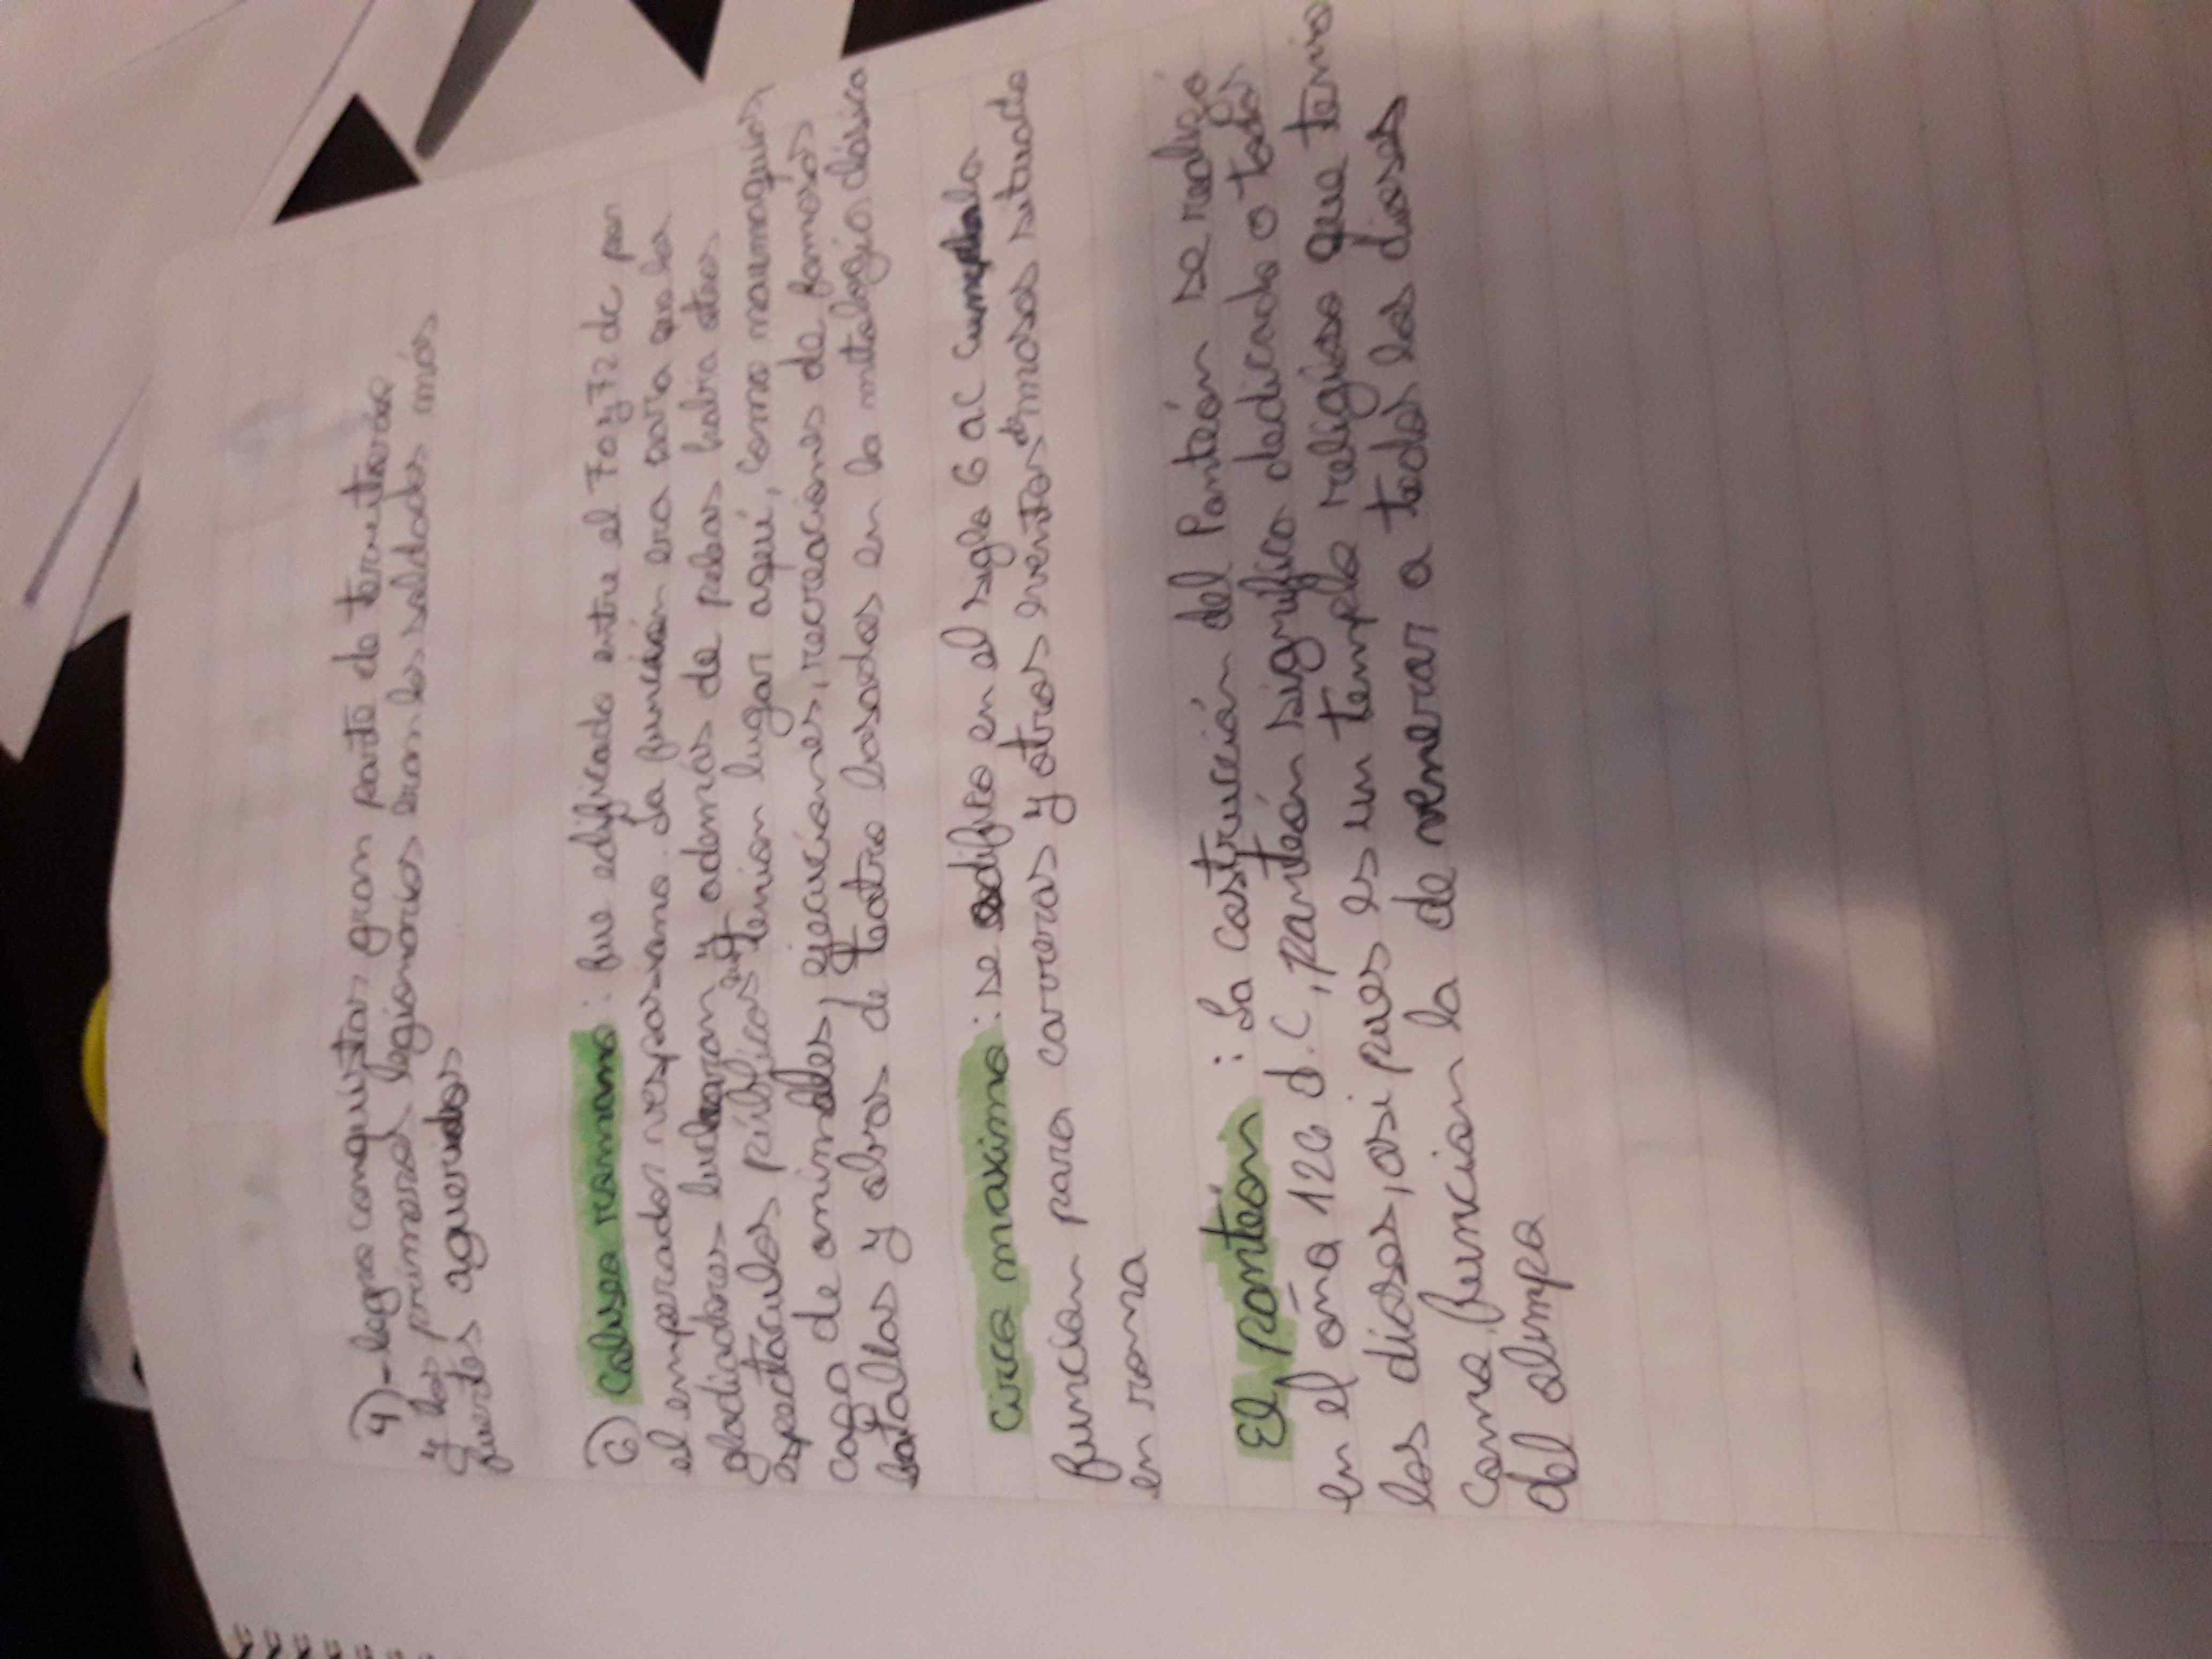 4)- logro conquistar gran parte de territorios
y los primeros legionarios eran los soldados más
fuertes y aguerridos
6) Coliseo romano: fue edificado entre el 70 y 72 dc por
el emperador vespasiano. La función era para que los
gladiadores lucharan y además de peleas hubo otros
espectáculos públicos que tenian lugar aquí, como naumaquias,
caza de animales, ejecuciones, recreaciones de famosas
batallas y obras de teatro basadas en la mitologia clásica
Circo maximo: se edifico en el siglo 6 ac cumplia
funcion para carreras y otros eventos de masas situado
en roma
El panteón: La costrucción del Panteón se realizó
en el año 126 d.C, panteón significa dedicado a todos
los dioses, asi pues es un templo religioso que tenia
como funcion la de venerar a todos los dioses
del olimpo